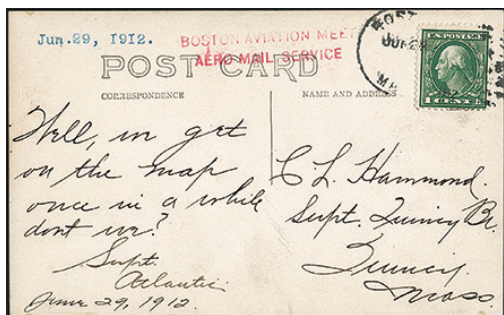 Jun. 29, 1912.
BOSTON AVIATION MEET
AERO MAIL SERVICE
POST CARD
CORRESPONDENCE
NAME AND ADDRESS
U.S. POSTAGE
1 CENT 1
Well, we get
on the map
once in a while
dont we?
Supt.
Atlantic
June 29, 1912.
C L Hammond.
Supt. Quincy Br.
Quincy
Mass.